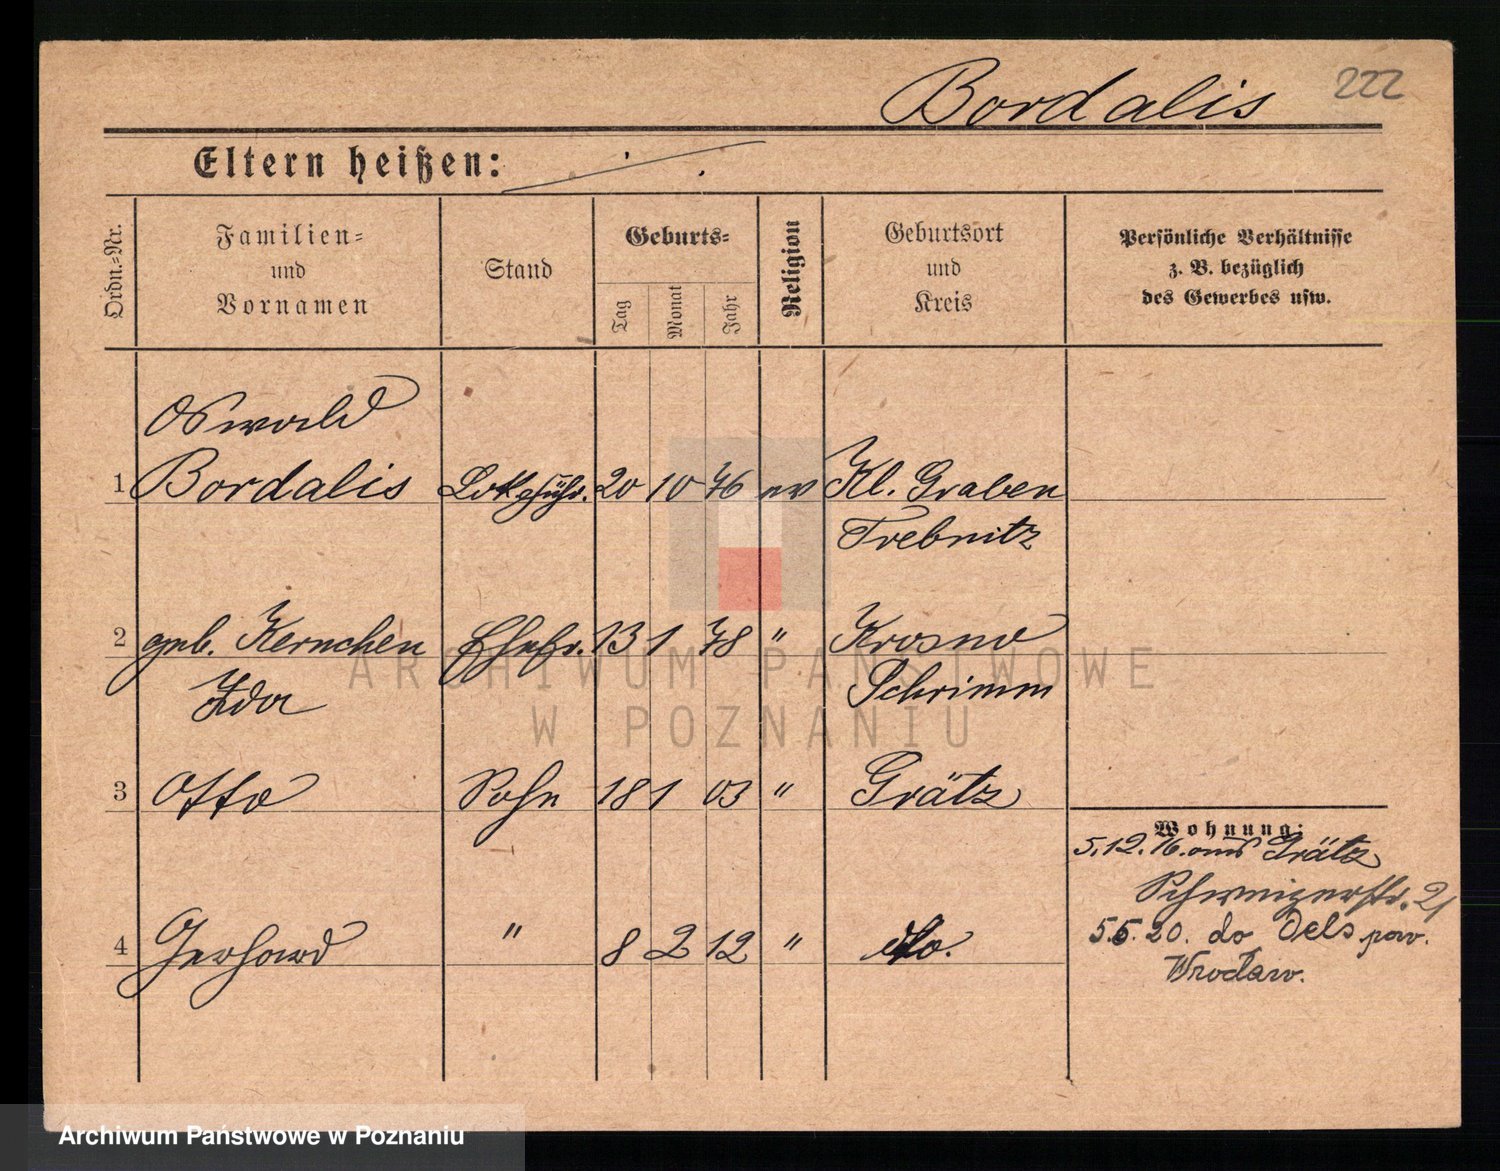 Bordalis 222
Eltern heißen: ./.
Ordn.-Nr.
Familien-
und
Vornamen
Stand
Geburts-
Tag
Monat
Jahr
Religion
Geburtsort
und
Kreis
Persönliche Verhältnisse
z. B. bezüglich
des Gewerbes usw.
Oswald
1 Bordalis Lokführ. 20 10 76 ev Kl. Graben
Trebnitz
2 geb. Kernchen Ehefr. 13 1 78 " Krosno
Ida Schrimm
3 Otto Sohn 18 1 03 " Grätz
Wohnung:
5.12.16. aus Grätz
Schweizerstr. 21
4 Gerhard " 8 2 12 " do.
5.5.20. do Oels pow.
Wrocław.
ARCHIWUM PAŃSTWOWE
W POZNANIU
Archiwum Państwowe w Poznaniu